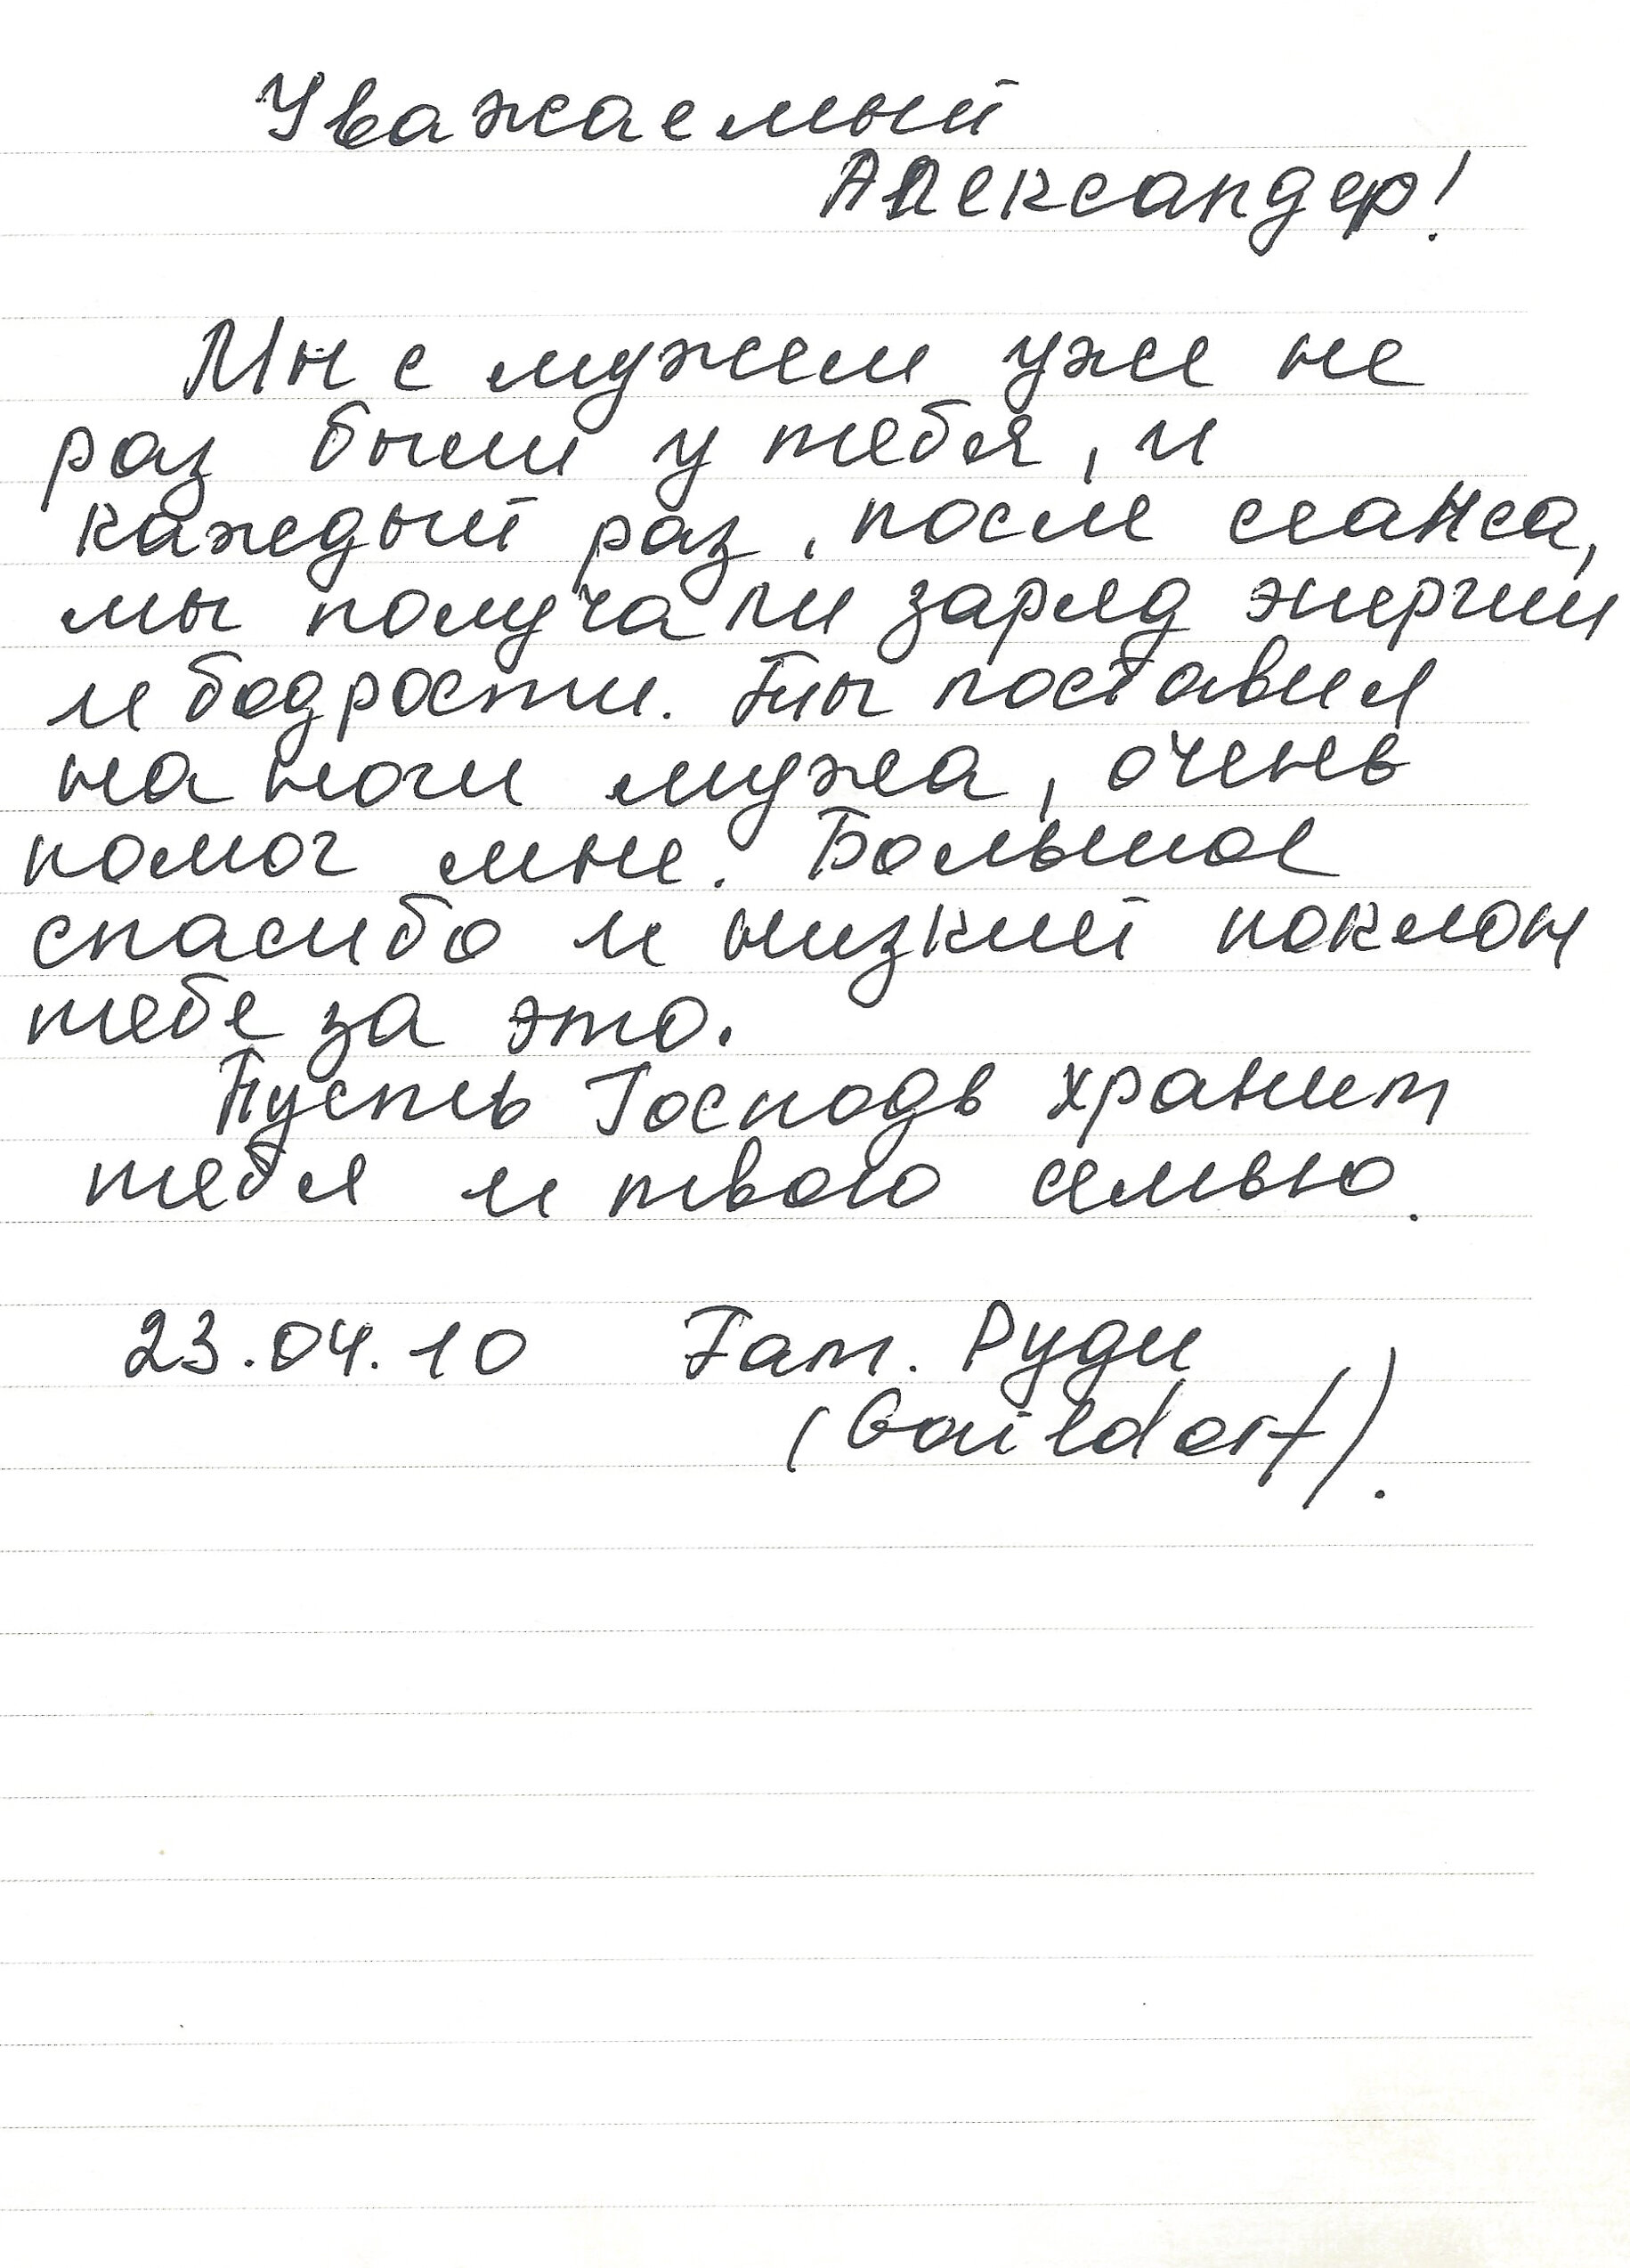 Уважаемый
Александер!
Мы с мужем уже не
раз были у тебя, и
каждый раз, после сеанса,
мы получали заряд энергии
и бодрости. Ты поставил
на ноги мужа, очень
помог мне. Большое
спасибо и низкий поклон
тебе за это.
Пусть Господь хранит
тебя и твою семью.
23.04.10 Fam. Руди
(Gaildorf).